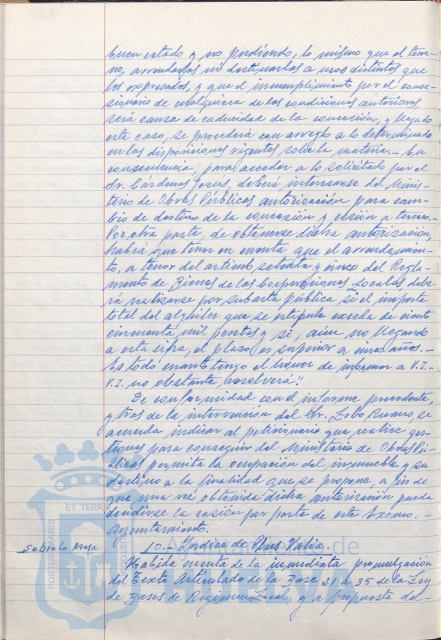 buen estado y no pudiendo, lo mismo que el terre-
no, arrendarlos ni destinarlos a usos distintos que
los expresados, y que el incumplimiento por el conce-
sionario de cualquiera de las condiciones anteriores
será causa de caducidad de la concesión, y llegado
este caso, se procederá con arreglo a lo determinado
en las disposiciones vigentes sobre la materia.- En
consecuencia, para acceder a lo solicitado por el
Sr. Cárdenas Josus, deberá interesarse del Minis-
terio de Obras Públicas autorización para cam-
bio de destino de la concesión y cesión a tercero.-
Por otra parte, de obtenerse dicha autorización,
habrá que tener en cuenta que el arrendamien-
to, a tenor del artículo setenta y cinco del Regla-
mento de Bienes de las Corporaciones Locales debe-
rá realizarse por subasta pública si el importe
total del alquiler que se estipula exceda de veinte
cincuenta mil pesetas y si, aun no llegando
a esta cifra, el plazo es superior a cinco años.-
Es todo cuanto tengo el honor de informar a V.I.-
V.I. no obstante, resolverá".
De conformidad con el informe precedente,
y tras de la intervención del Sr. Lobo Ruano, se
acuerda indicar al peticionario que realice ges-
tiones para conseguir del Ministerio de Obras Pú-
blicas permita la ocupación del inmueble y su
destino a la finalidad que se propone, a fin de
que una vez obtenida dicha autorización pueda
decidirse la cesión por parte de este Excmo.-
Ayuntamiento.
Sobre la Mesa
10.- Indice de Plus Valia.
Habida cuenta de la inmediata promulgación
del Texto Articulado de la Base 21 a 35 de la Ley
de Bases de Régimen Local, y a propuesta del